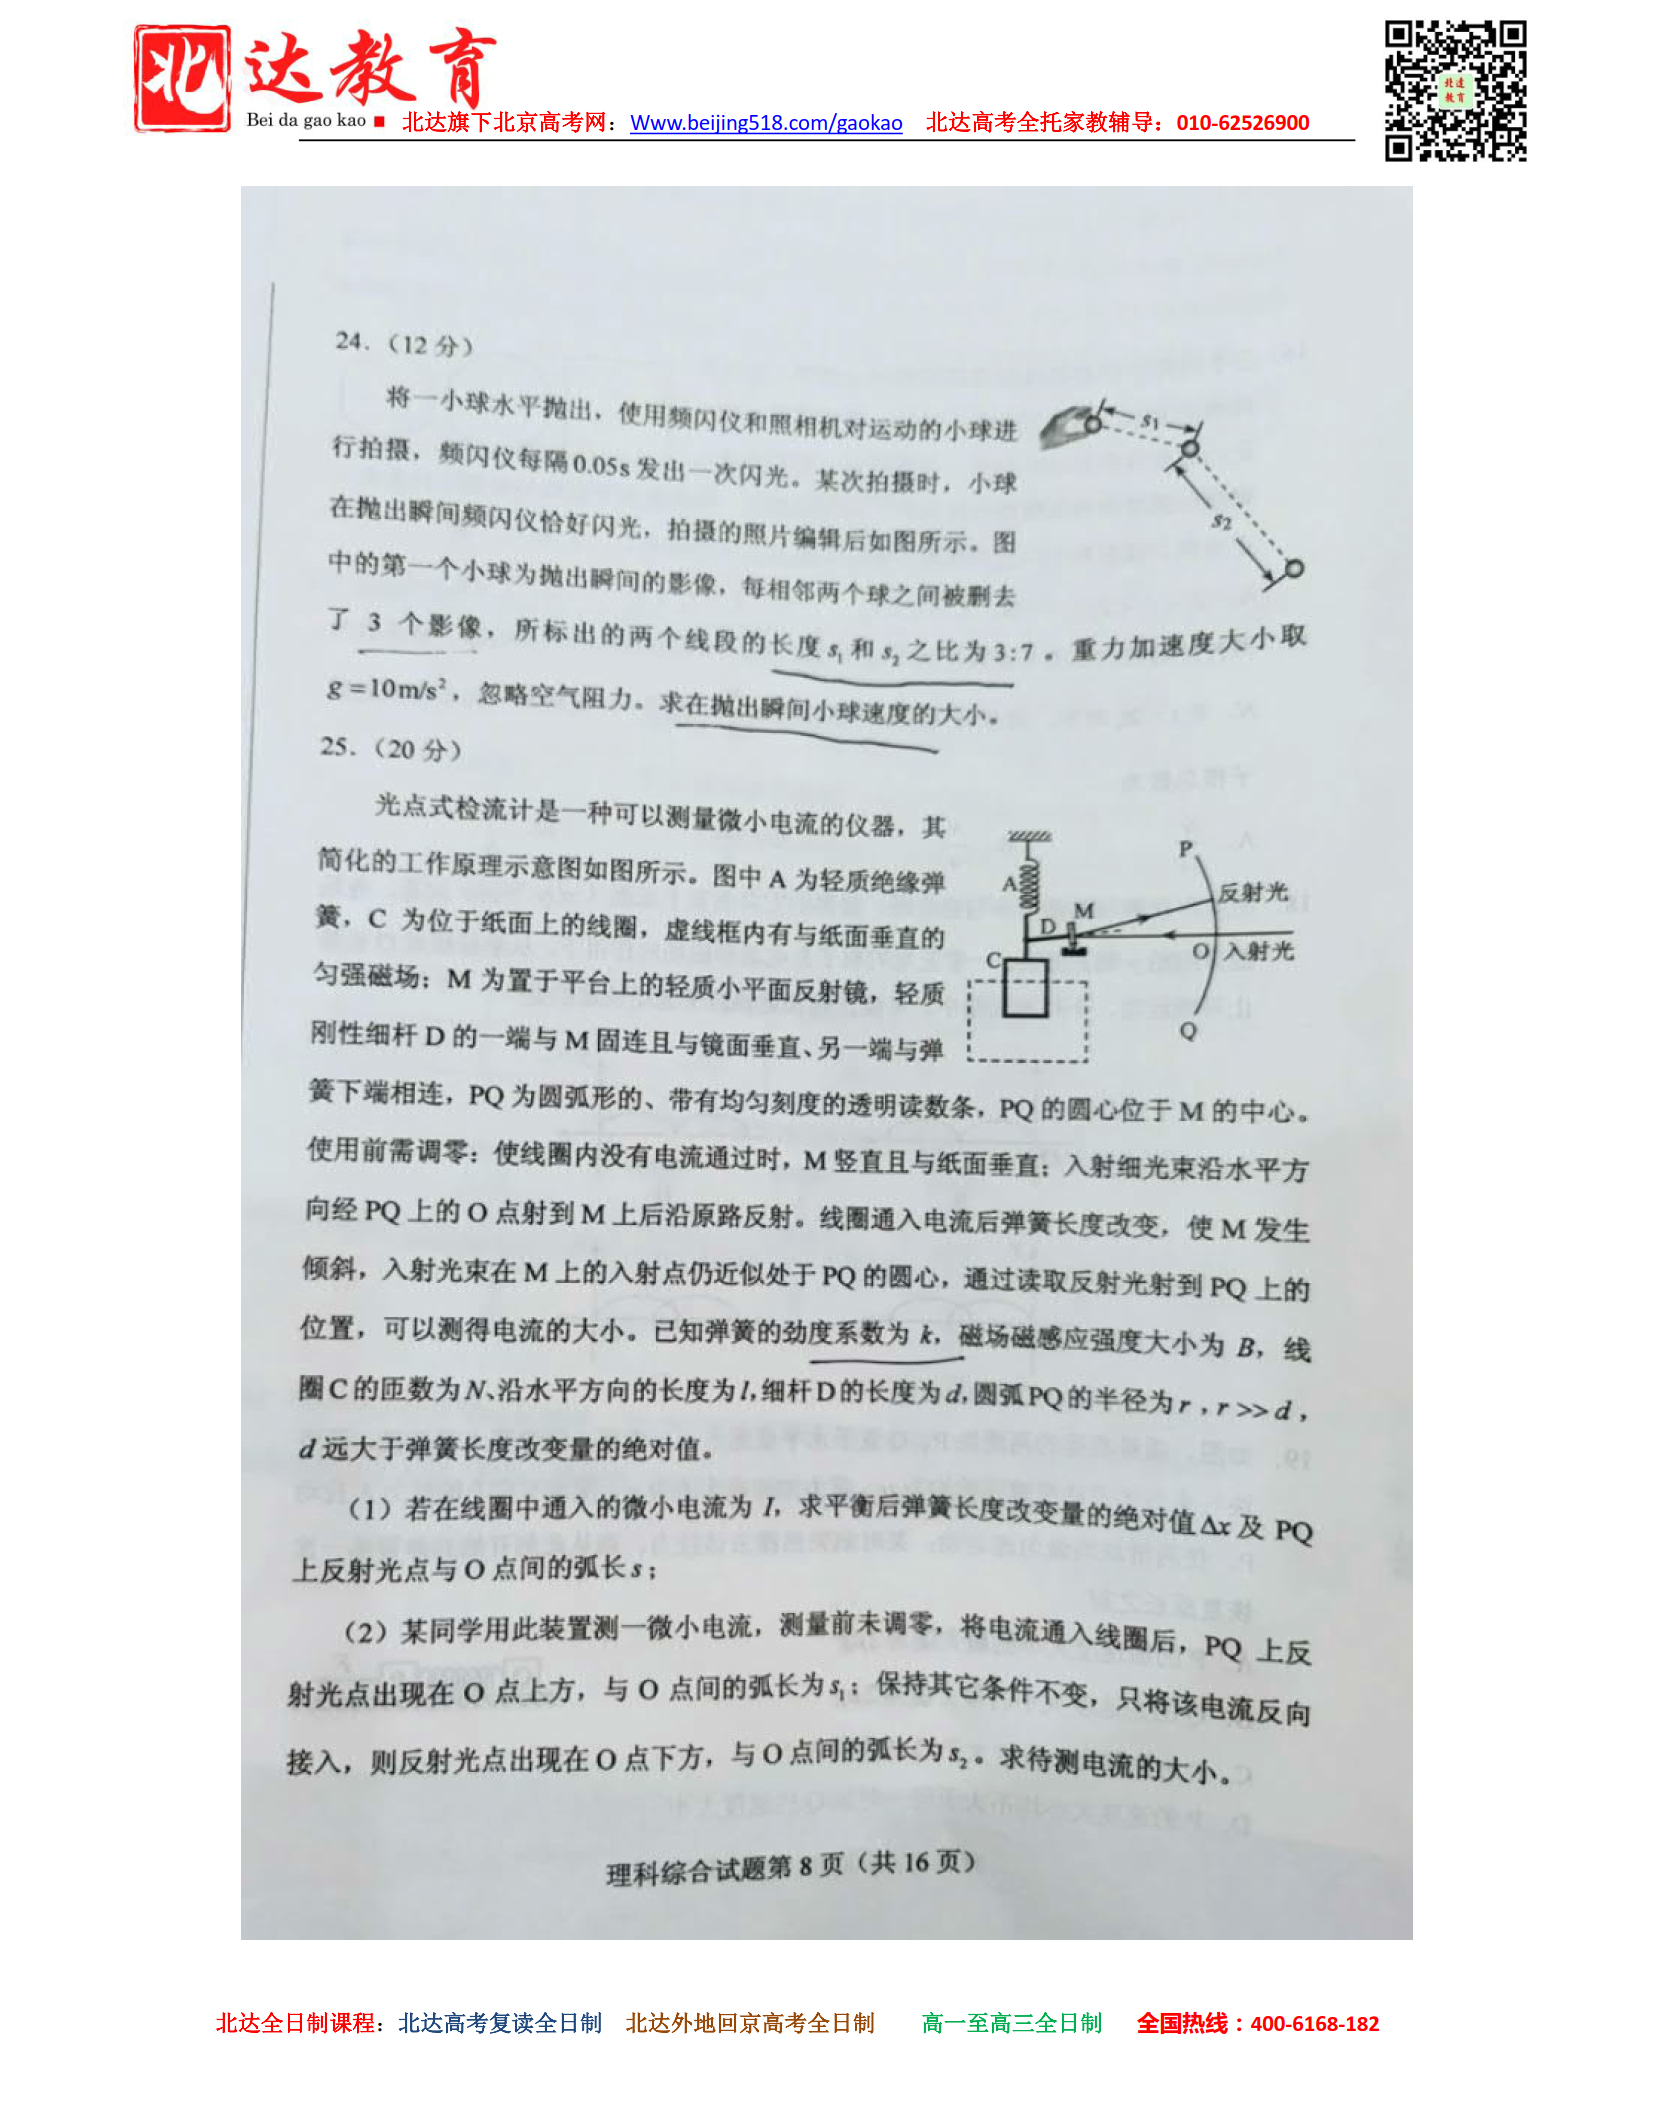 北达教育
Bei da gao kao ■ 北达旗下北京高考网：Www.beijing518.com/gaokao 北达高考全托家教辅导：010-62526900
北达教育
24．（12 分）
将一小球水平抛出，使用频闪仪和照相机对运动的小球进
行拍摄，频闪仪每隔 0.05s 发出一次闪光。某次拍摄时，小球
在抛出瞬间频闪仪恰好闪光，拍摄的照片编辑后如图所示。图
中的第一个小球为抛出瞬间的影像，每相邻两个球之间被删去
了 3 个影像，所标出的两个线段的长度 s₁ 和 s₂ 之比为 3:7 。重力加速度大小取
g =10m/s²，忽略空气阻力。求在抛出瞬间小球速度的大小。
s₁
s₂
25．（20 分）
光点式检流计是一种可以测量微小电流的仪器，其
简化的工作原理示意图如图所示。图中 A 为轻质绝缘弹
簧，C 为位于纸面上的线圈，虚线框内有与纸面垂直的
匀强磁场；M 为置于平台上的轻质小平面反射镜，轻质
刚性细杆 D 的一端与 M 固连且与镜面垂直、另一端与弹
簧下端相连，PQ 为圆弧形的、带有均匀刻度的透明读数条，PQ 的圆心位于 M 的中心。
使用前需调零：使线圈内没有电流通过时，M 竖直且与纸面垂直；入射细光束沿水平方
向经 PQ 上的 O 点射到 M 上后沿原路反射。线圈通入电流后弹簧长度改变，使 M 发生
倾斜，入射光束在 M 上的入射点仍近似处于 PQ 的圆心，通过读取反射光射到 PQ 上的
位置，可以测得电流的大小。已知弹簧的劲度系数为 k，磁场磁感应强度大小为 B，线
圈 C 的匝数为 N、沿水平方向的长度为 l，细杆 D 的长度为 d，圆弧 PQ 的半径为 r，r >> d，
d 远大于弹簧长度改变量的绝对值。
P
A
反射光
M
D
O
入射光
C
Q
（1）若在线圈中通入的微小电流为 I，求平衡后弹簧长度改变量的绝对值 Δx 及 PQ
上反射光点与 O 点间的弧长 s；
（2）某同学用此装置测一微小电流，测量前未调零，将电流通入线圈后，PQ 上反
射光点出现在 O 点上方，与 O 点间的弧长为 s₁；保持其它条件不变，只将该电流反向
接入，则反射光点出现在 O 点下方，与 O 点间的弧长为 s₂。求待测电流的大小。
理科综合试题第 8 页（共 16 页）
北达全日制课程：北达高考复读全日制 北达外地回京高考全日制 高一至高三全日制 全国热线：400-6168-182